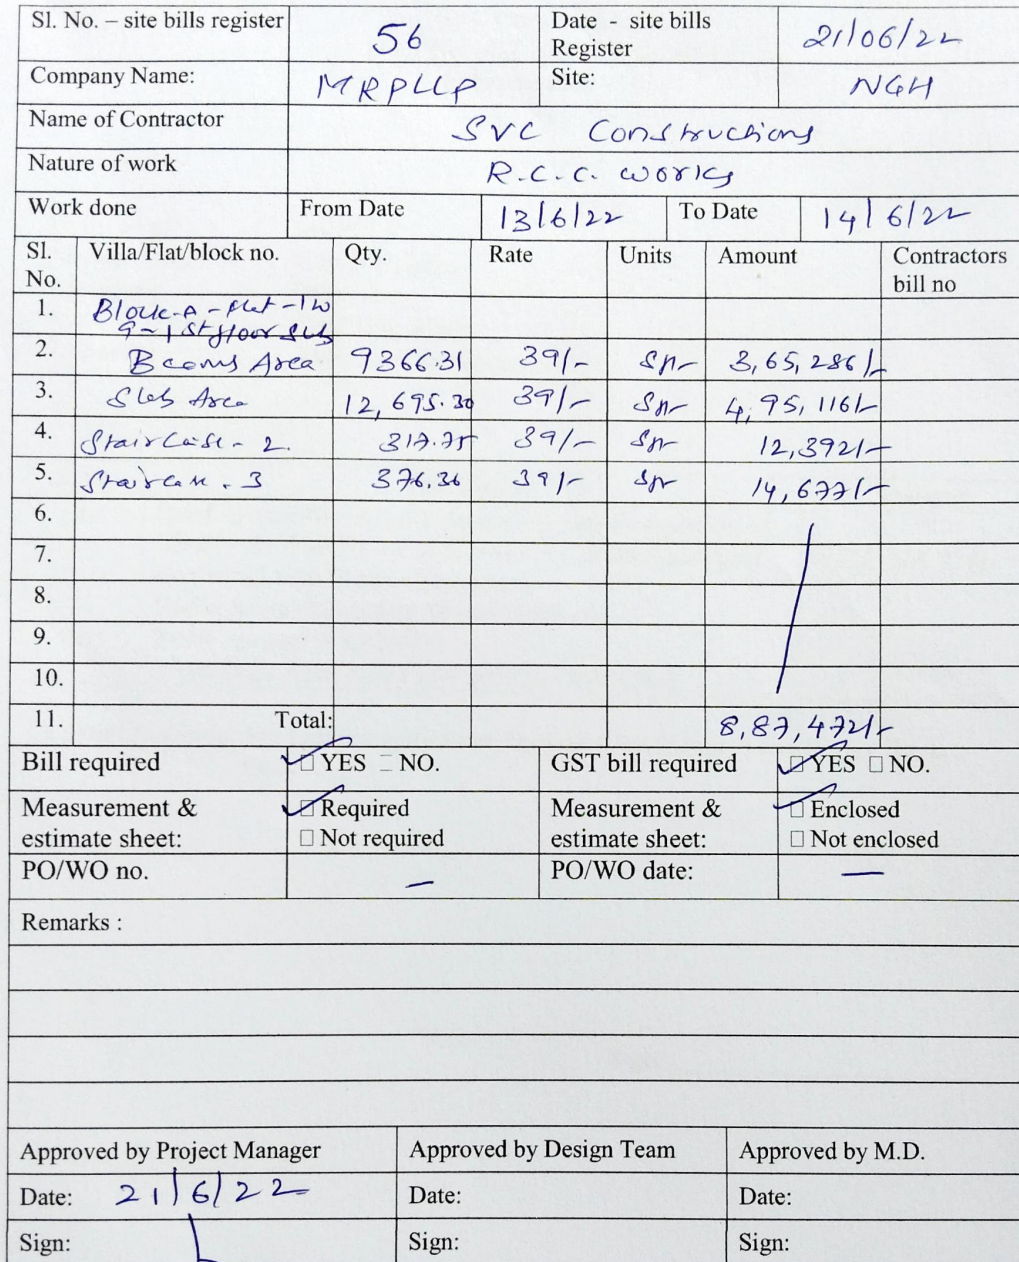 Sl. No. – site bills register 56 Date - site bills Register 21/06/22
Company Name: MRPLLP Site: NGH
Name of Contractor SVC Constructions
Nature of work R.C.C. works
Work done From Date 13/6/22 To Date 14/6/22
Sl. No. Villa/Flat/block no. Qty. Rate Units Amount Contractors bill no
1. Block-A - flat - 1 to
9 - 1st floor slab
2. Beams Area 9366.31 39/- Sft 3,65,286/-
3. Slab Area 12,695.30 39/- Sft 4,95,116/-
4. Staircase - 2. 317.75 39/- Sft 12,392/-
5. Staircase - 3 376.36 39/- Sft 14,677/-
6.
7.
8.
9.
10.
11. Total: 8,87,472/-
Bill required YES NO. GST bill required YES NO.
Measurement & estimate sheet: Required Measurement & estimate sheet: Enclosed
Not required Not enclosed
PO/WO no. — PO/WO date: —
Remarks :
Approved by Project Manager Approved by Design Team Approved by M.D.
Date: 21/6/22 Date: Date:
Sign: Sign: Sign: